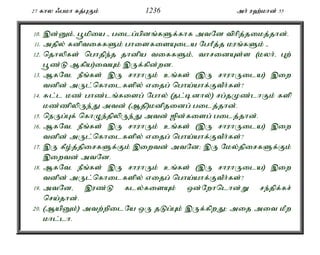 27 கால ஃபமா கத்புகும் 1236 அர் ரஹ்மான் 55
10. இன்னும், பூமியை - படைப்பினங்களுக்காக அவனே விரித்தமைத்தான்.
11. அதில் கனிவகைகளும் பாளைகளையுடைய பேரீத்த மரங்களும் -
12. தொலிகள் பொதிந்த தானிய வகைகளும், வாசனையுள்ள (மலர், புற்
பூண்டு ஆகிய)வையும் இருக்கின்றன.
13. ஆகவே, நீங்கள் இரு சாராரும் உங்கள் (இரு சாராருடைய) இறை
வனின் அருட்கொடைகளில் எதைப் பொய்யாக்குவீர்கள்?
14. சுட்ட மண் பாண்டங்களைப் போல் (தட்டினால்) சப்தமுண்டாகும் களி
மண்ணிலிருந்து அவன் (ஆதி)மனிதனைப் படைத்தான்.
15. நெருப்புக் கொழுந்திலிருந்து அவன் ஜின்களைப் படைத்தான்.
16. ஆகவே, நீங்கள் இரு சாராரும் உங்கள் (இரு சாராருடைய) இறை
வனின் அருட்கொடைகளில் எதைப் பொய்யாக்குவீர்கள்?
17. இரு கீழ்த்திசைகளுக்கும் இறைவன் அவனே; இரு மேல்திசைகளுக்கும்
இறைவன் அவனே.
18. ஆகவே, நீங்கள் இரு சாராரும் உங்கள் (இரு சாராருடைய) இறை
வனின் அருட்கொடைகளில் எதைப் பொய்யாக்குவீர்கள்?
19. அவனே, இரண்டு கடல்களையும் ஒன்றோடொன்று சந்திக்கச்
செய்தான்.
20. (ஆயினும்) அவற்றிடையே ஒரு தடுப்பும் இருக்கிறது; அதை அவை மீற
மாட்டா.